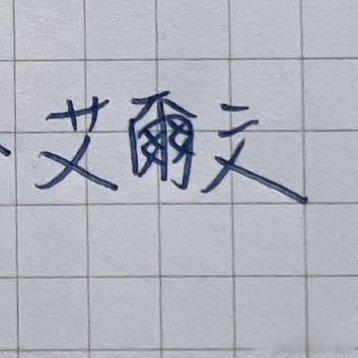 艾爾文